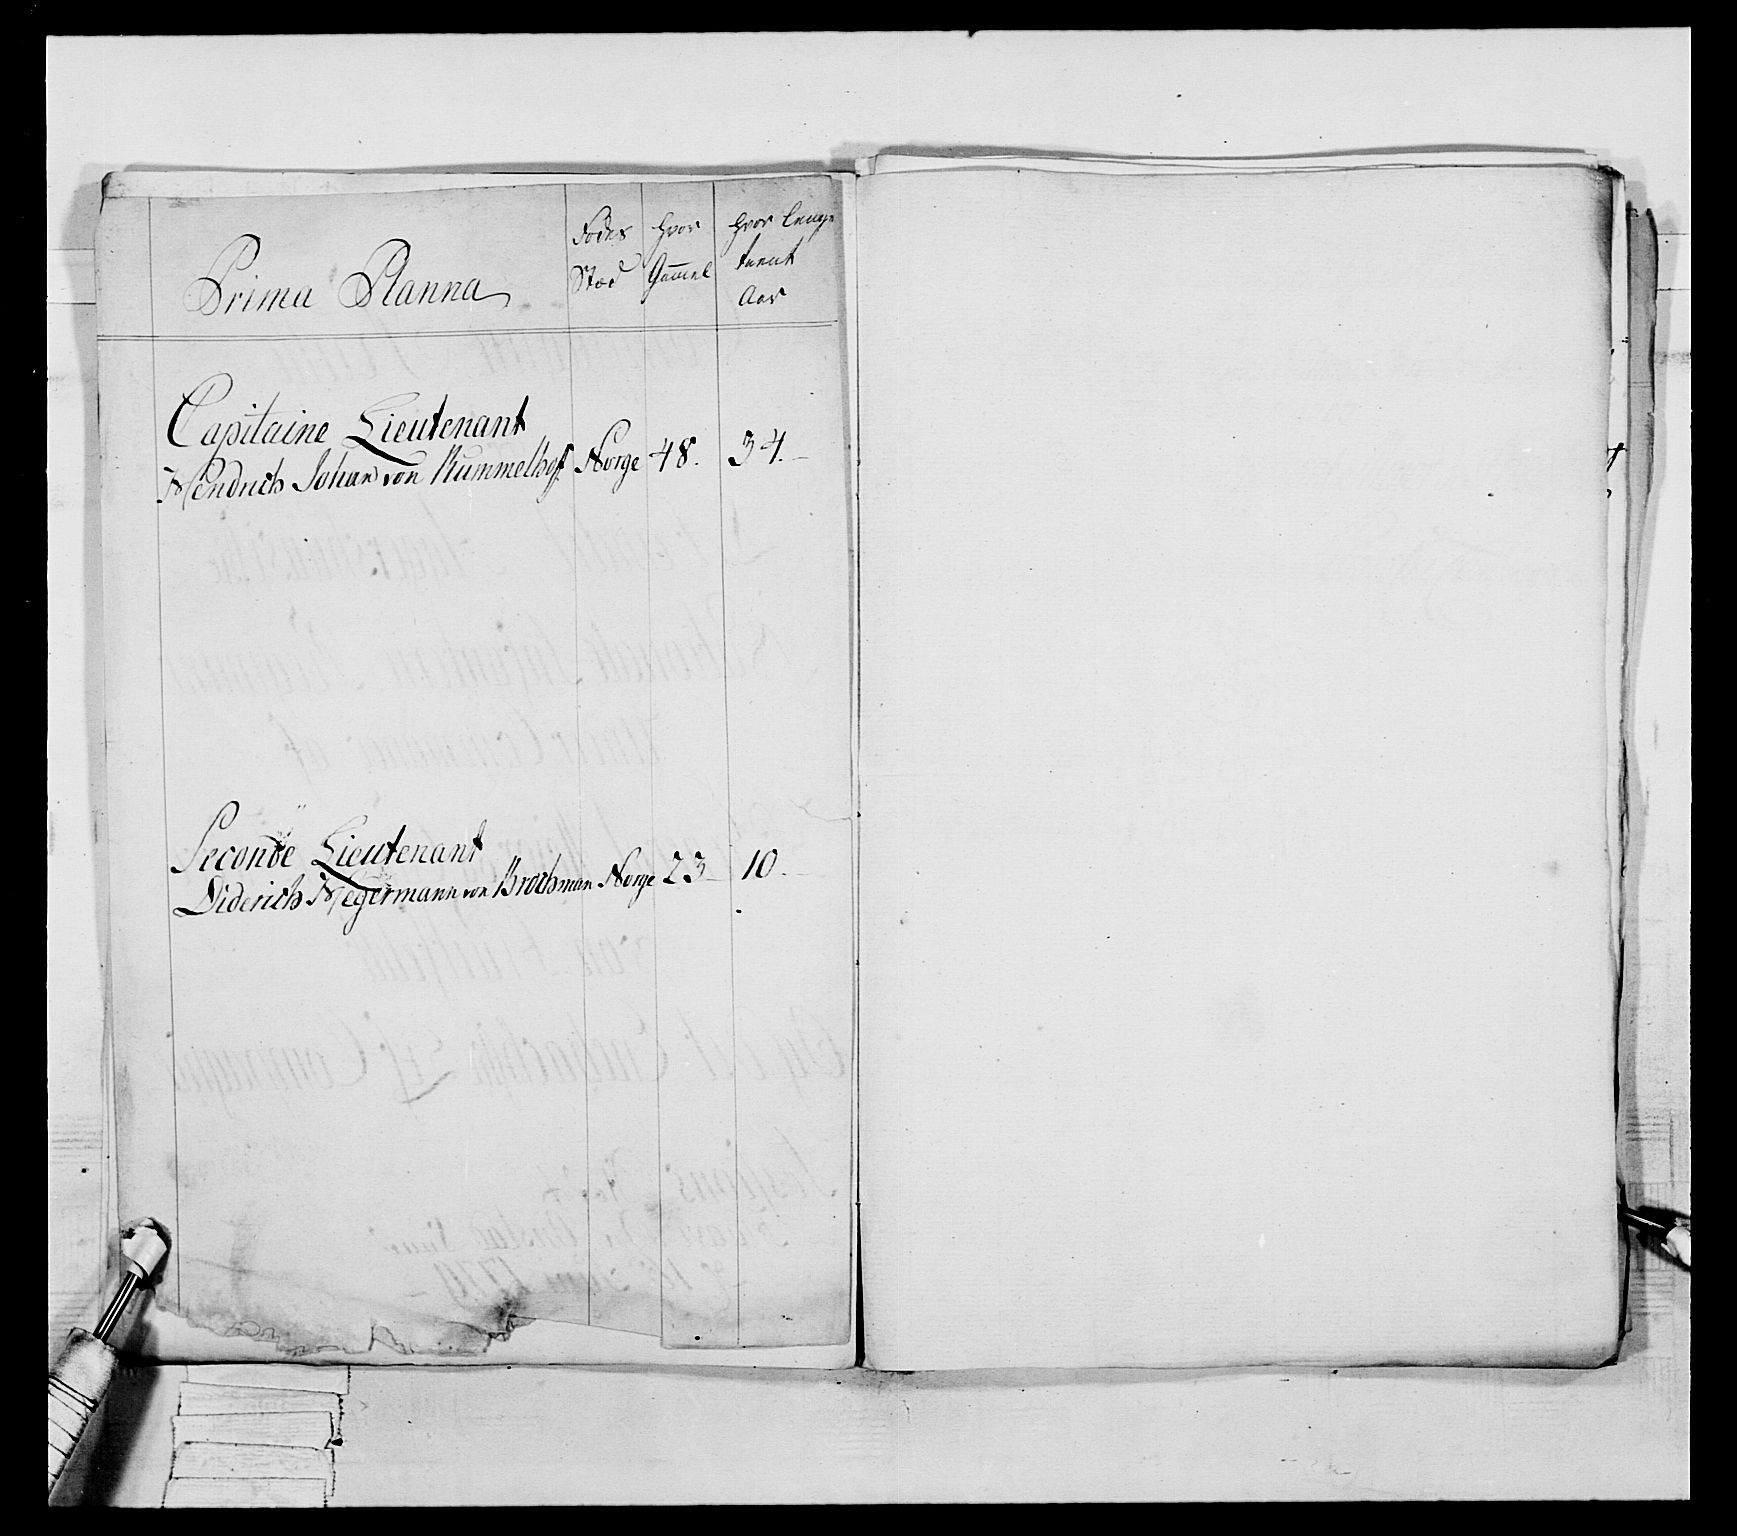 Prima Planna
Fødes Stæd
hvor Gammel
hvor længe tient Aar
Capitaine Lieutenant
Hendrich Johan von Rummelhoff Norge 48. 34.
Seconde Lieutenant
Diderich Hegermann von Brochman Norge 23 10.